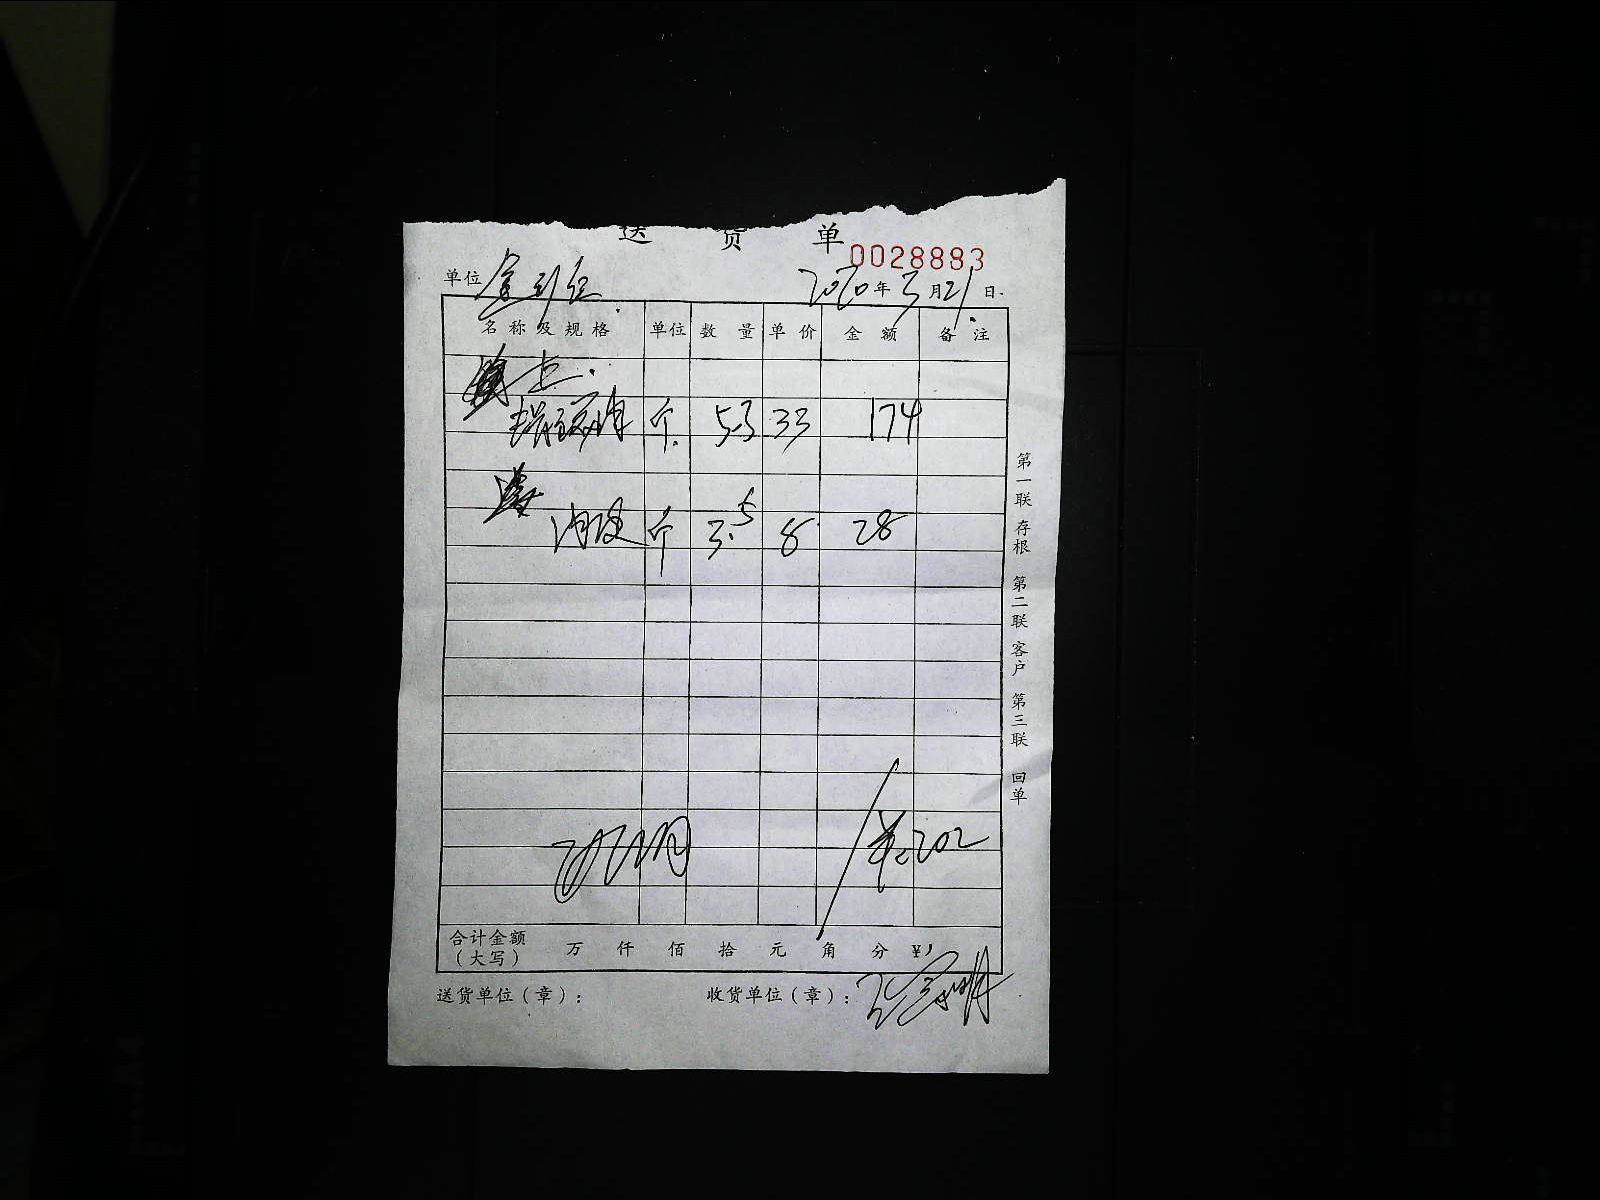 送货单
0028883
单位 2020年3月21日
名称及规格 单位 数量 单价 金额 备注
上.
个 5.3 33 174
肉皮 个 3.5 8 28
单:202
合计金额（大写） 万 仟 佰 拾 元 角 分 ¥
送货单位（章）： 收货单位（章）：
第一联 存根 第二联 客户 第三联 回单